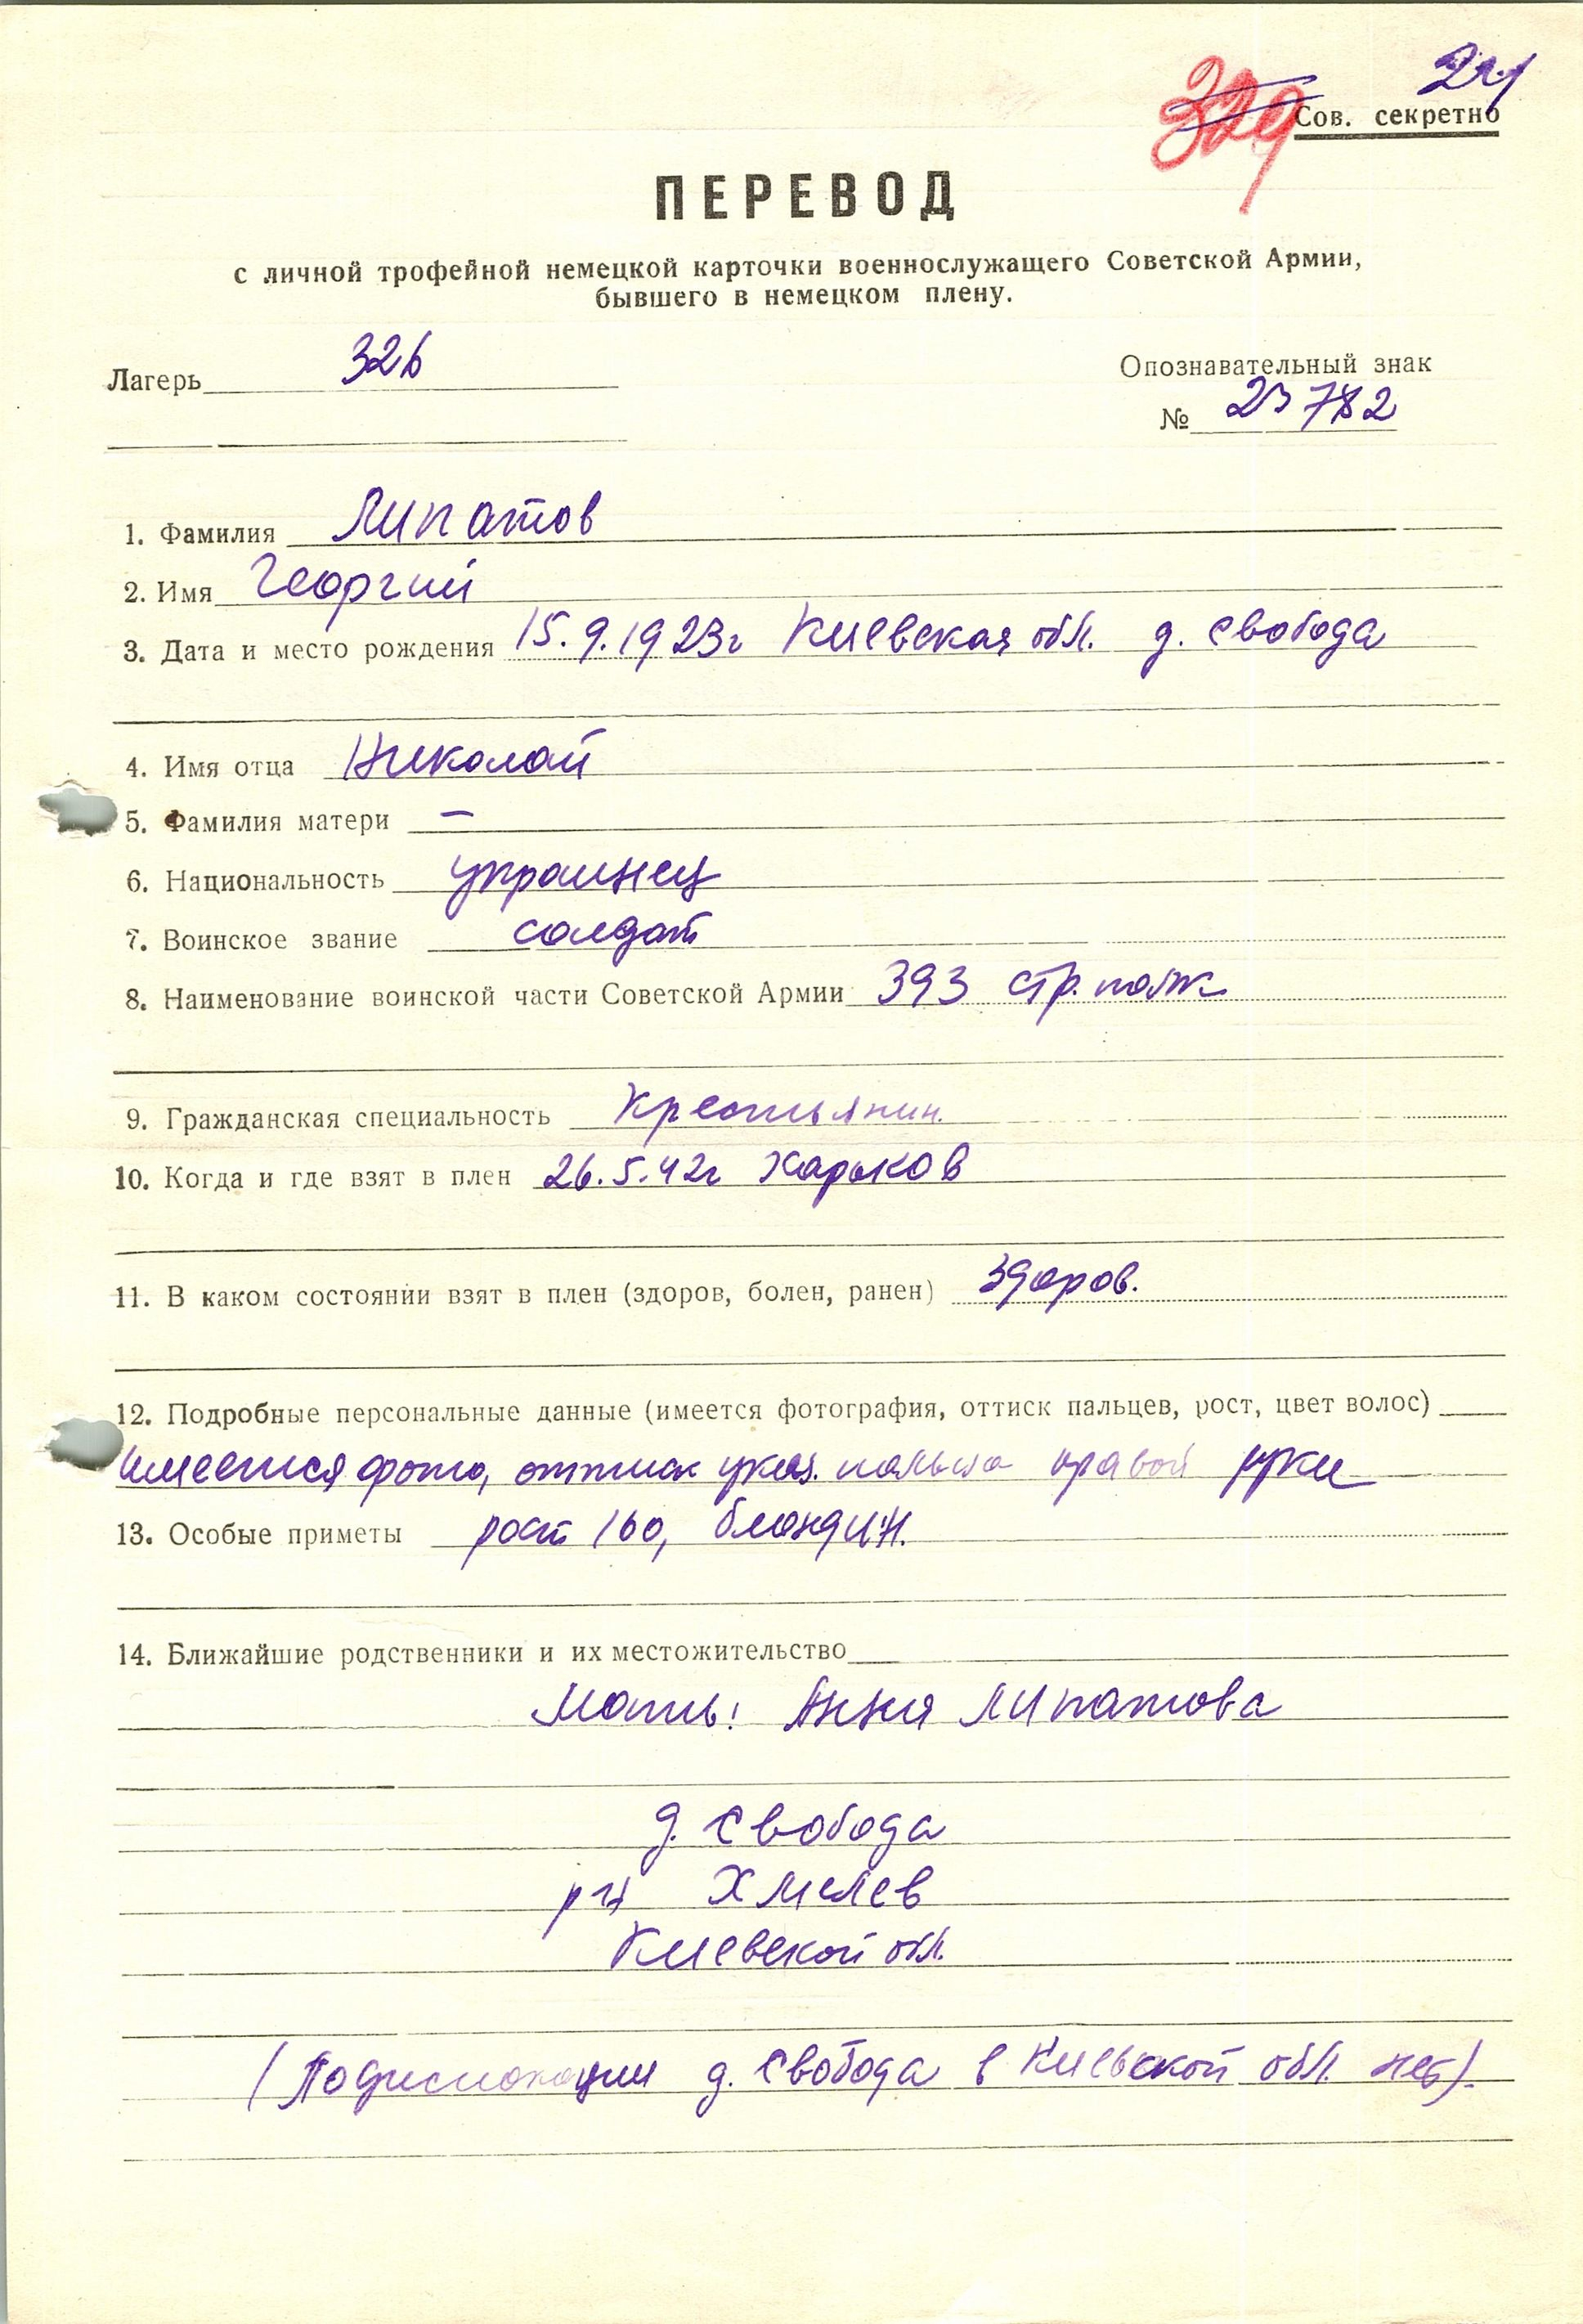 329
Сов. секретно
ПЕРЕВОД
с личной трофейной немецкой карточки военнослужащего Советской Армии,
бывшего в немецком плену.
Лагерь 326
Опознавательный знак
№ 23782
1. Фамилия Липатов
2. Имя Георгий
3. Дата и место рождения 15.9.1923г Киевская обл. д. Свобода
4. Имя отца Николай
5. Фамилия матери —
6. Национальность украинец
7. Воинское звание солдат
8. Наименование воинской части Советской Армии 393 стр. полк
9. Гражданская специальность крестьянин.
10. Когда и где взят в плен 26.5.42г Харьков
11. В каком состоянии взят в плен (здоров, болен, ранен) здоров.
12. Подробные персональные данные (имеется фотография, оттиск пальцев, рост, цвет волос)
имеется фото, оттиск указ. пальца правой руки
13. Особые приметы рост 160, блондин.
14. Ближайшие родственники и их местожительство
Мать: Анна Липатова
д. Свобода
Хмелев
Киевской обл.
(По дислокации д. Свобода в Киевской обл. нет).